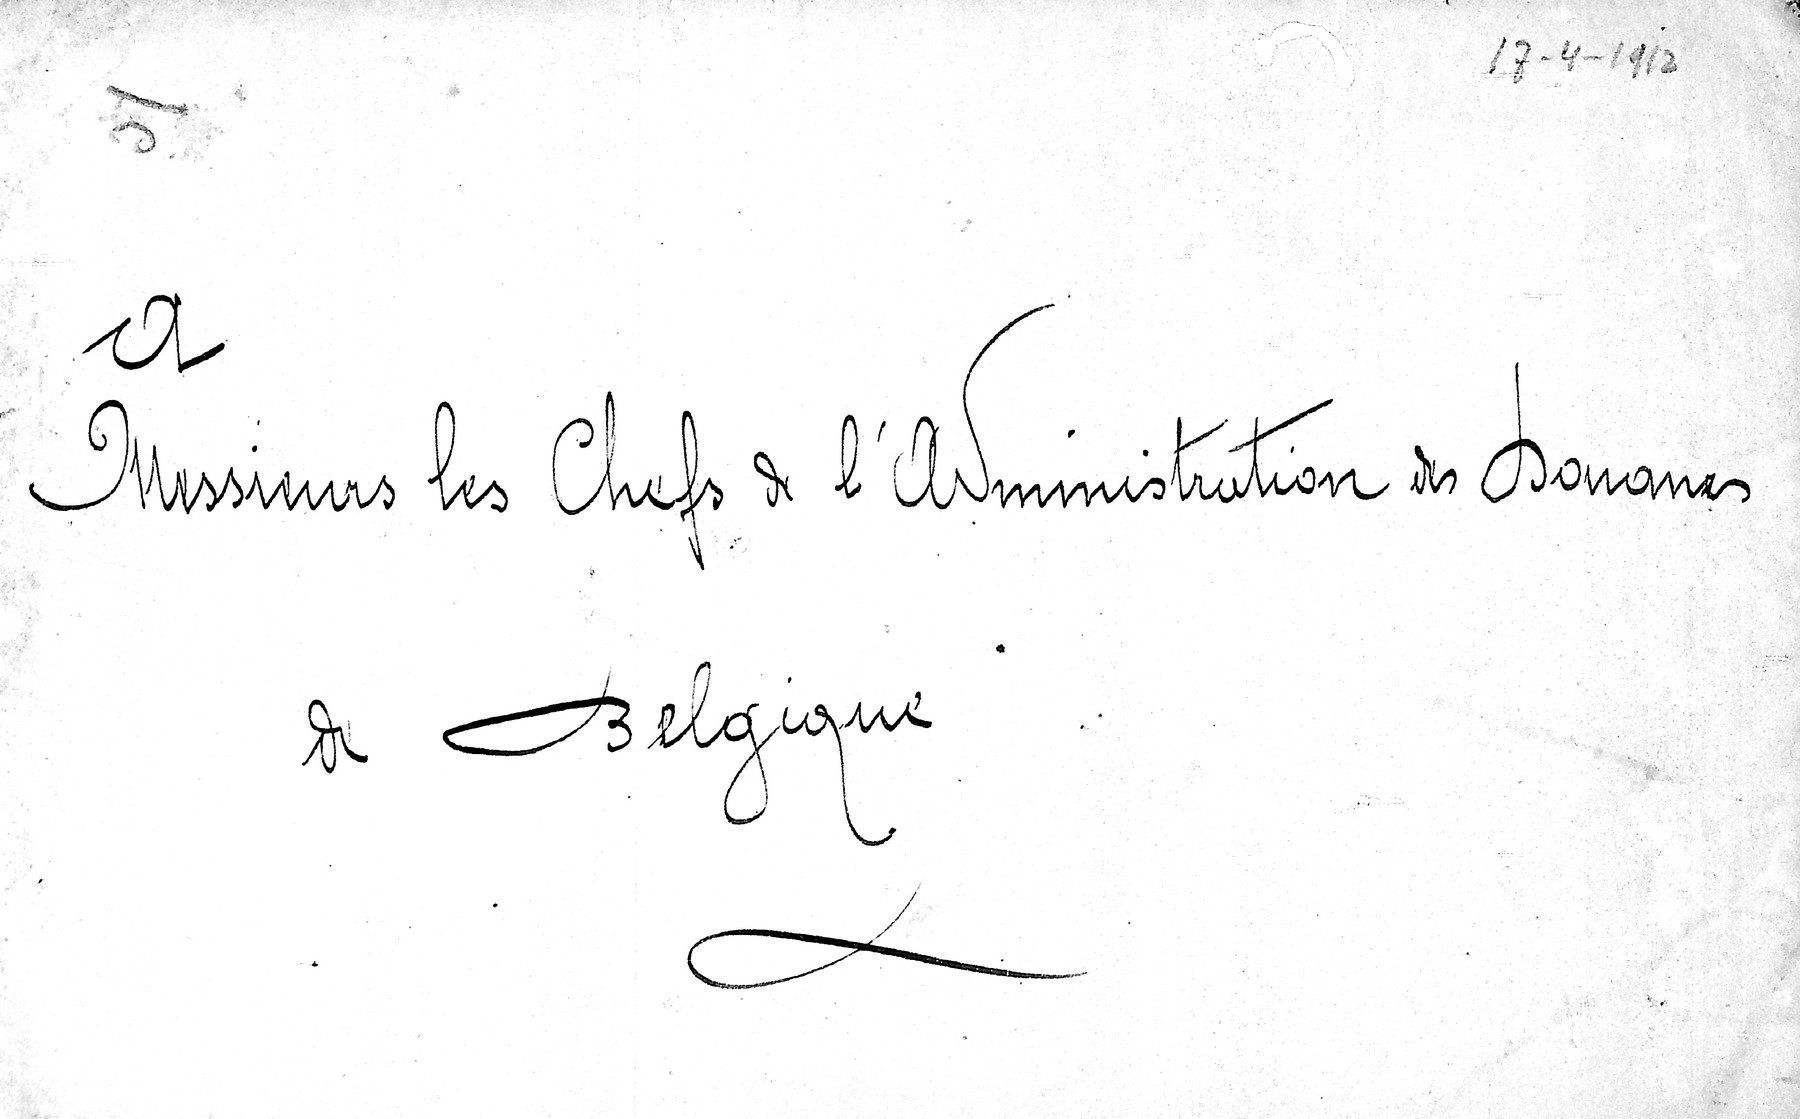 17-4-1912
A
Messieurs les Chefs de l'Administration des Douanes
de Belgique